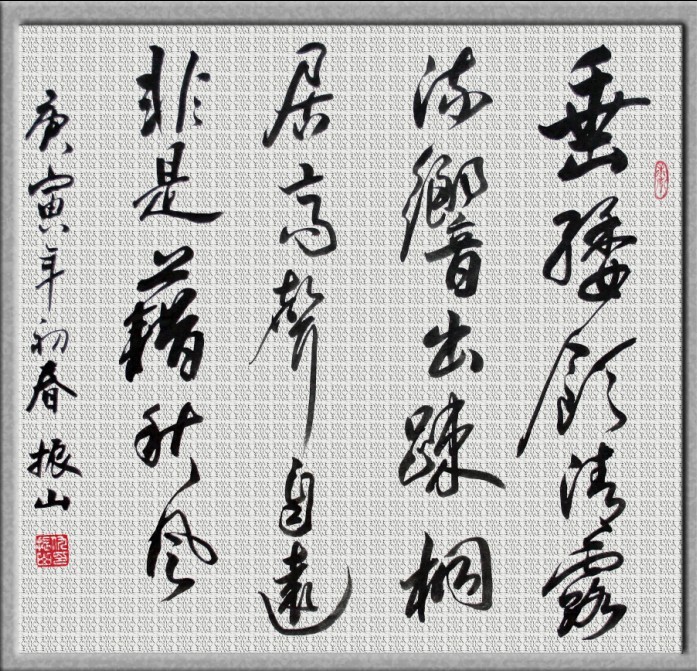 垂緌飲清露
流響出踈桐
居高聲自遠
非是藉秋風
庚寅年初春 振山